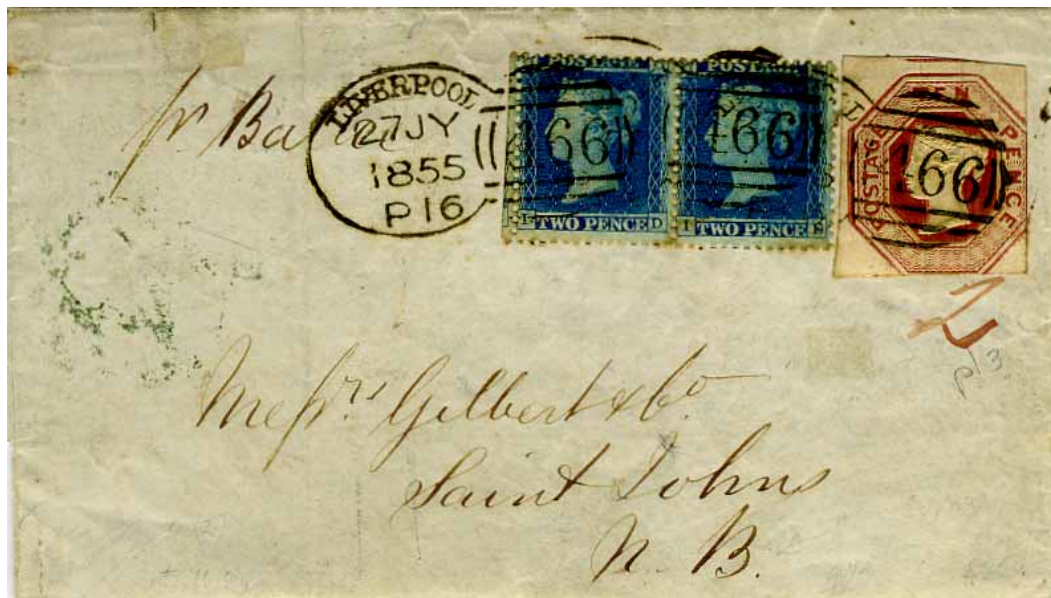 LIVERPOOL
27 JY
1855
P 16
466
POSTAGE
I TWO PENCE D
466
POSTAGE
I TWO PENCE E
POSTAGE TEN PENCE
466
pr
2
Messrs Gilbert & Co.
Saint Johns
N. B.